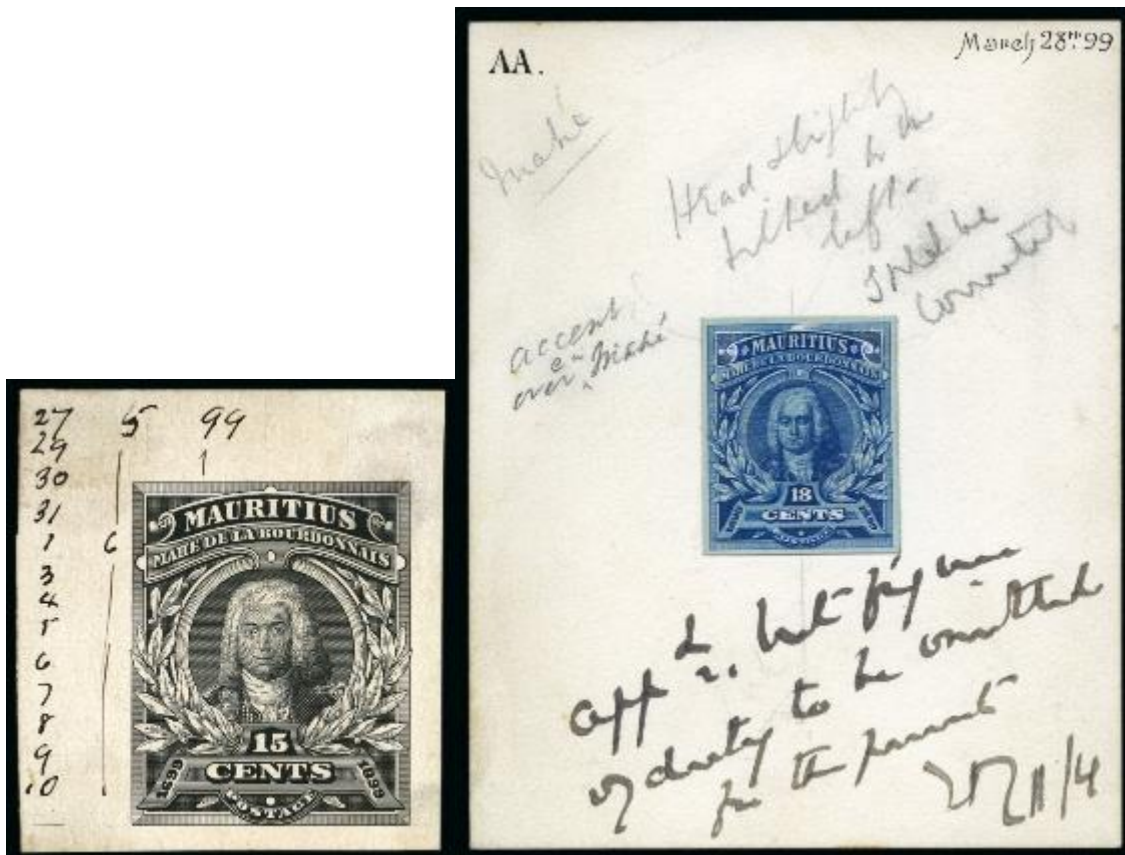 27 5 99
29
30
31
1 6
3
4
5
6
7
8
9
10
MAURITIUS
MAHÉ DE LA BOURDONNAIS
15
CENTS
1699 1899
POSTAGE
AA.
March 28TH. 99
Mahé
Head slightly
tilted to the
left
should be
corrected
accent
over e in Mahé
MAURITIUS
MAHE DE LA BOURDONNAIS
18
CENTS
POSTAGE
appd. but figures
of duty to be omitted
for the present
11/4